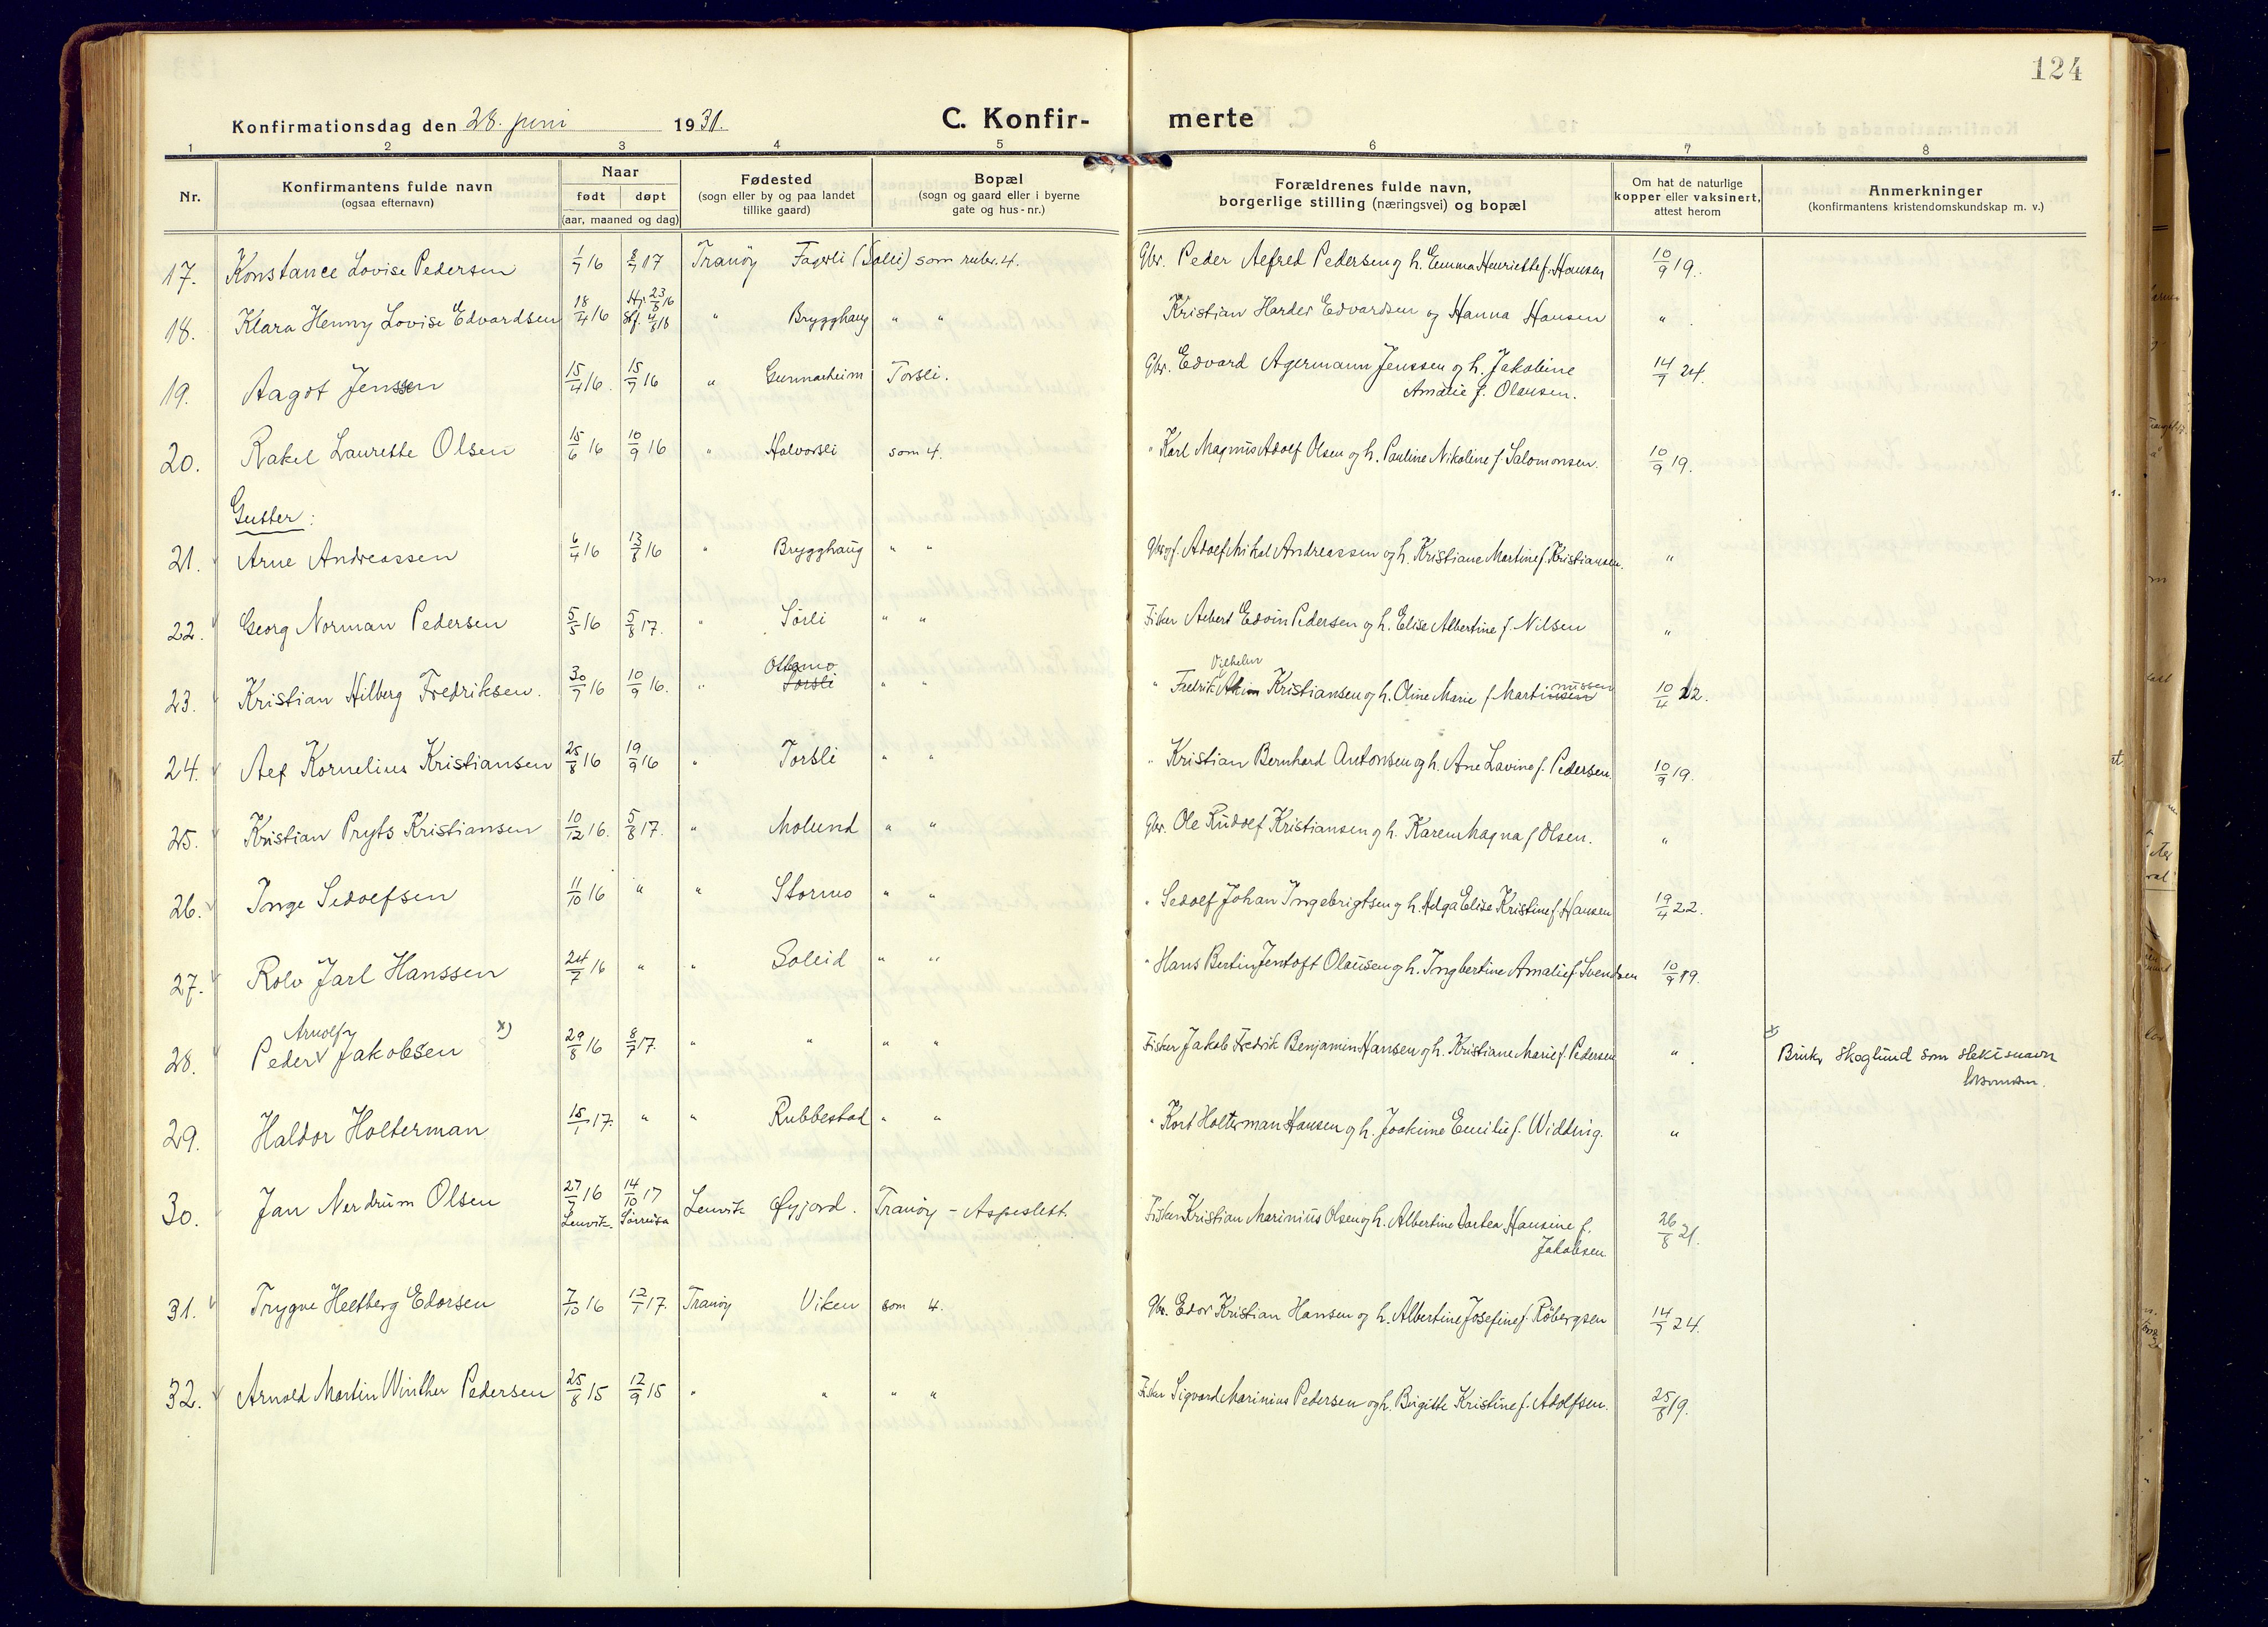 124
Konfirmationsdag den 28. juni 1931.
C. Konfir- merte
1 2 3 4 5 6 7 8
Nr.
Konfirmantens fulde navn
(ogsaa efternavn)
Naar
født døpt
(aar, maaned og dag)
Fødested
(sogn eller by og paa landet
tillike gaard)
Bopæl
(sogn og gaard eller i byerne
gate og hus-nr.)
Forældrenes fulde navn,
borgerlige stilling (næringsvei) og bopæl
Om hat de naturlige
kopper eller vaksinert,
attest herom
Anmerkninger
(konfirmantens kristendomskundskap m. v.)
17. Konstance Lovise Pedersen 1/7 16 8/7 17 Tranöy Fagerli (Solli) som rubr. 4. Gbr. Peder Alfred Pedersen og h. Emma Henriette f. Hansen 10/9 19.
18. Klara Henny Lovise Edvardsen 18/4 16 Hj. 23/8 16 Stf. 4/8 18 " Brygghaug " " Kristian Harder Edvardsen og Hanna Hansen "
19. Aagot Jenssen 15/4 16. 15/7 16 " Gunnarheim Torsli. Gbr. Edvard Agermann Jenssen og h. Jakobine
Amalie f. Olausen. 14/7 24.
20. Rakel Laurette Olsen 15/6 16 10/9 16 " Halvorsli som 4. " Karl Magnus Adolf Olsen og h. Pauline Nikoline f. Salomonsen. 10/9 19.
Gutter:
21. Arne Andreassen 6/4 16 13/8 16 " Brygghaug " " Adolf Mikal Andreassen og h. Kristiane Martine f. Kristiansen. "
22. Georg Norman Pedersen 5/5 16 5/8 17. " Sörli " " Fisker Albert Edvin Pedersen og h. Elise Albertine f. Nilsen "
Ottarmo Vilhelm nussen
23. Kristian Hilberg Fredriksen. 30/7 16 10/9 16. " Torsli " " " Fredrik Kristiansen og h. Oline Marie f. Martinsen 10/4 22.
24. Alf Kornelius Kristiansen 25/8 16 19/9 16 " Torsli " " " Kristian Bernhard Antonsen og h. Ane Lavine f. Pedersen. 10/9 19.
25. Kristian Pryts Kristiansen 10/12 16. 5/8 17. " Molund " " Gbr. Ole Rudolf Kristiansen og h. Karen Magna f. Olsen. "
26. Inge Sedolfsen 11/10 16 " " Stormo " " " Sedolf Johan Ingebrigtsen og h. Helga Elise Kristine f. Hansen 19/4 22.
27. Rolv Jarl Hanssen 24/7 16 " " Sollid " " " Hans Bertin Jentoft Olausen og h. Ingbertine Amalie f. Svendsen 10/9 19.
Arnolf
28. Peder Jakobsen x) 29/8 16 8/7 17. " " " " Fisker Jakob Fredrik Benjamin Hansen og h. Kristiane Marie f. Pedersen " x Bruker Skoglund som slektsnavn
29. Haldor Holterman 15/1 17. " " Rubbestad " " " Kort Holterman Hansen og h. Joakime Emilie f. Widding. "
30. Jan Nerdrum Olsen 27/7 16 Lenvik. 14/10 17 Sörreisa Lenvik Öyjord. Tranöy - Aspeslett. Fisker Kristian Marinius Olsen og h. Albertine Dortea Hansine f.
Jakobsen 26/8 21.
31. Trygve Heltberg Edorsen 7/10 16 12/7 17. Tranöy Viken som 4. Gbr. Edor Kristian Hansen og h. Albertine Josefine f. Röbergsen 14/7 24.
32. Arnold Martin Winther Pedersen 25/8 15 12/9 15 " " " " Fisker Sigvard Marinius Pedersen og h. Birgitte Kristine f. Adolfsen. 25/8 19.